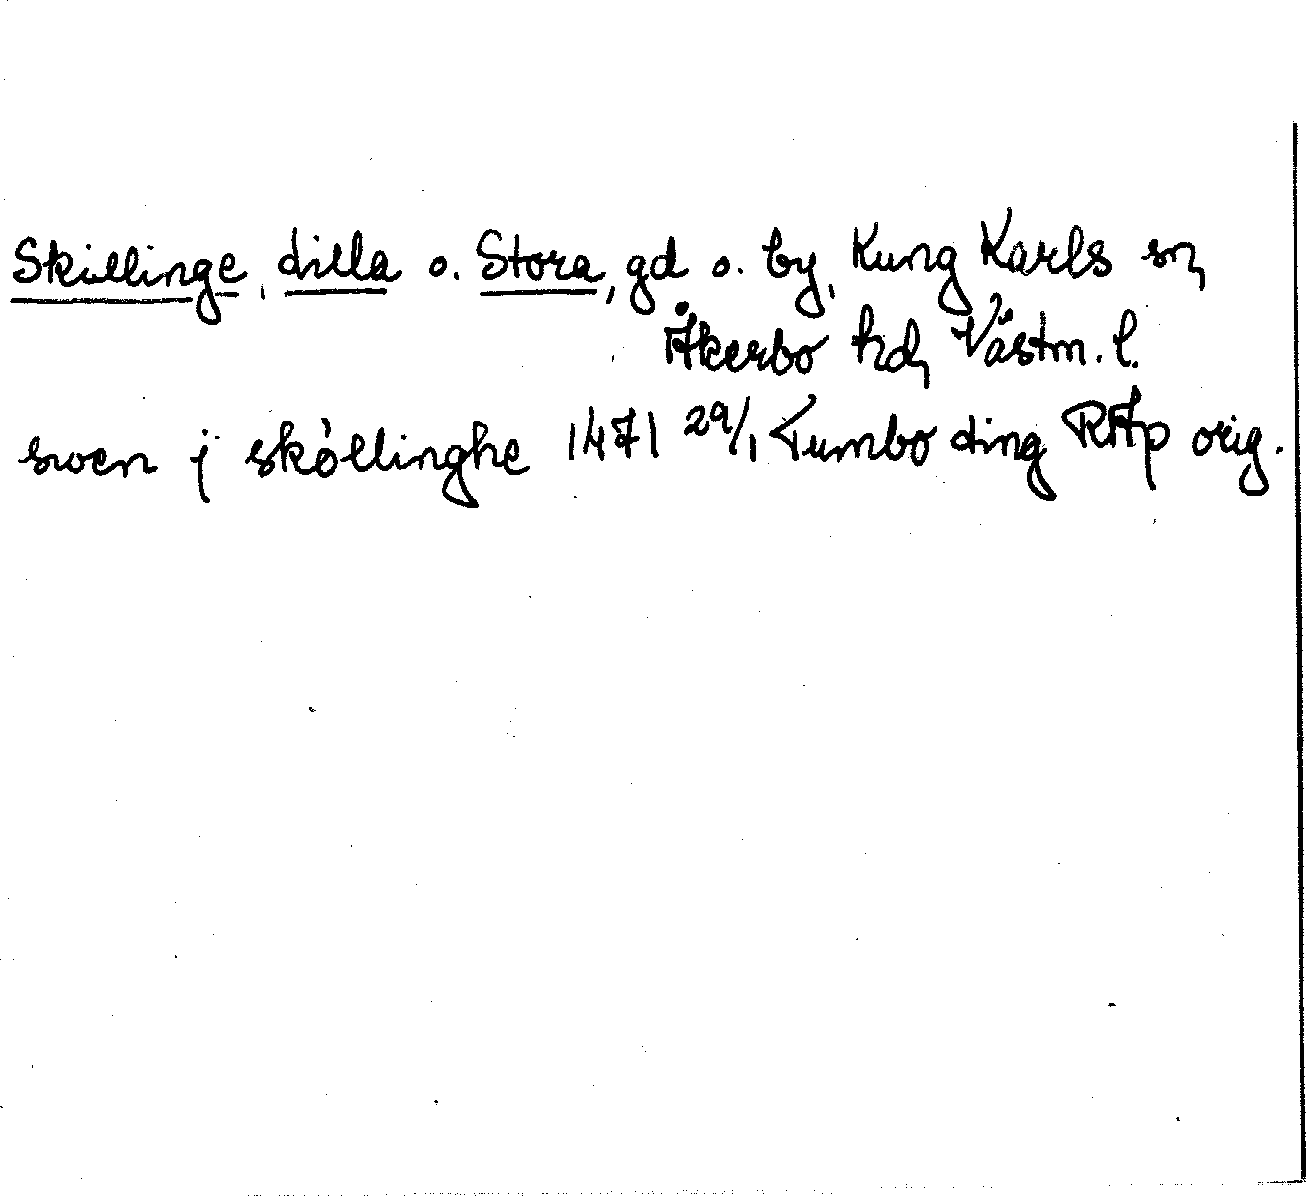 Skillinge, Lilla o. Stora, gd o. by, Kung Karls sn,
Åkerbo hd, Västm. l.
swen j skóllinghe 1471 29/1 Tumbo ting RAp orig.